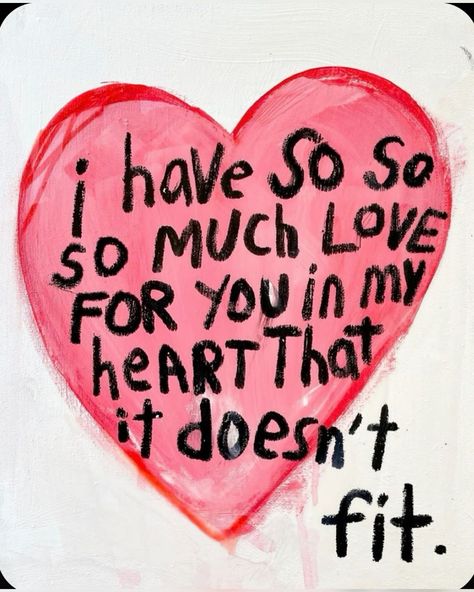 i have so so
so much LOVE
FOR YOU in my
heART That
it doesn't
fit.